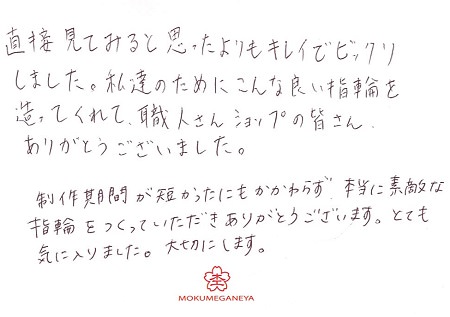 直接見てみると思ったよりもキレイでビックリ
しました。私達のためにこんな良い指輪を
造ってくれて、職人さんショップの皆さん、
ありがとうございました。
制作期間が短かったにもかかわらず、本当に素敵な
指輪をつくっていただきありがとうございます。とても
気に入りました。大切にします。
MOKUMEGANEYA